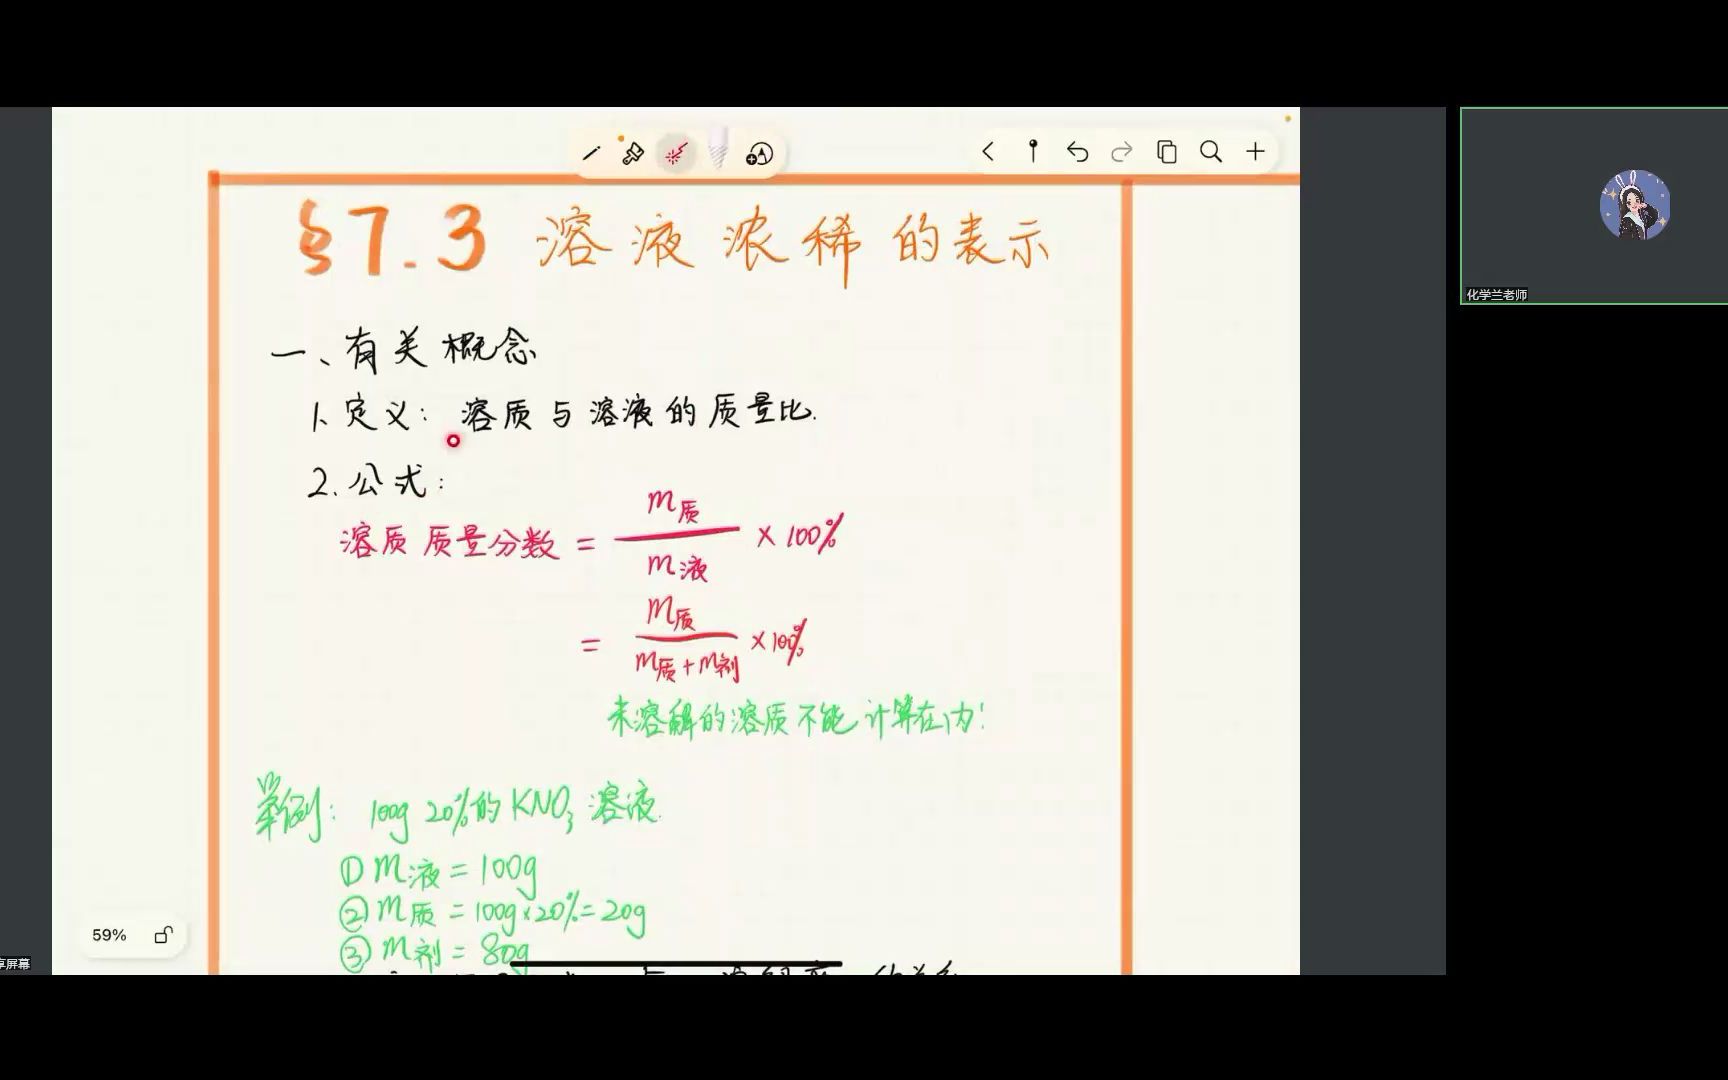 §7.3 溶液浓稀的表示
化学兰老师
一、有关概念
1. 定义: 溶质与溶液的质量比.
2. 公式:
溶质质量分数 = m质 / m液 × 100%
= m质 / m质+m剂 × 100%
未溶解的溶质不能计算在内!
举例: 100g 20%的KNO₃溶液.
① m液 = 100g
② m质 = 100g×20% = 20g
③ m剂 = 80g
59%
享屏幕